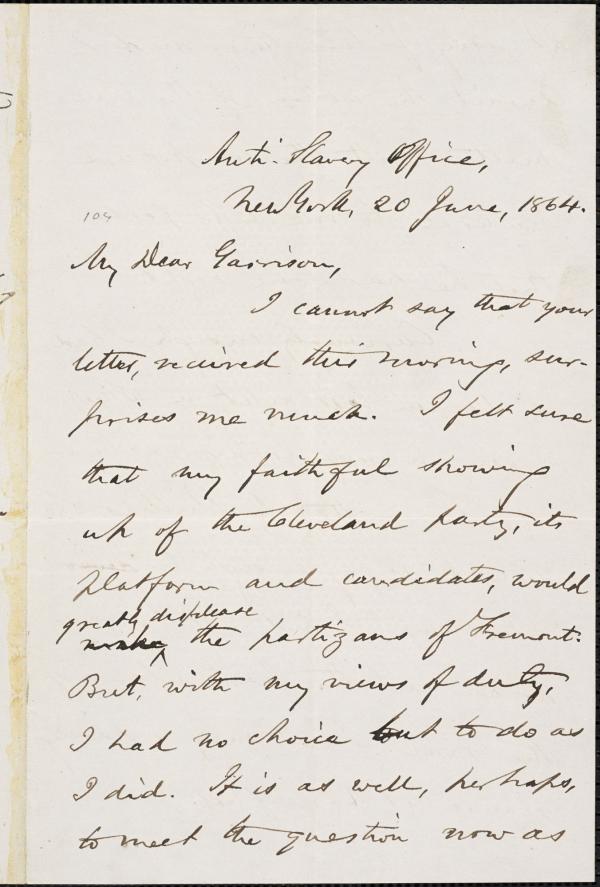 Anti-Slavery Office,
New York, 20 June, 1864.
104
My Dear Garrison,
I cannot say that your
letter, received this morning, sur-
prises me much. I felt sure
that my faithful showing
up of the Cleveland party, its
platform and candidates, would
greatly displease
the partizans of Fremont.
But, with my views of duty,
I had no choice but to do as
I did. It is as well, perhaps,
to meet the question now as